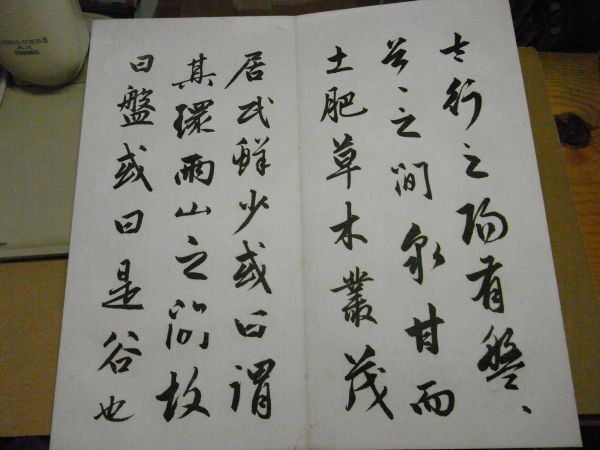 太行之陽有盤〻
谷〻之間泉甘而
土肥草木叢茂
居民鮮少或曰謂
其環兩山之間故
曰盤或曰是谷也
AX